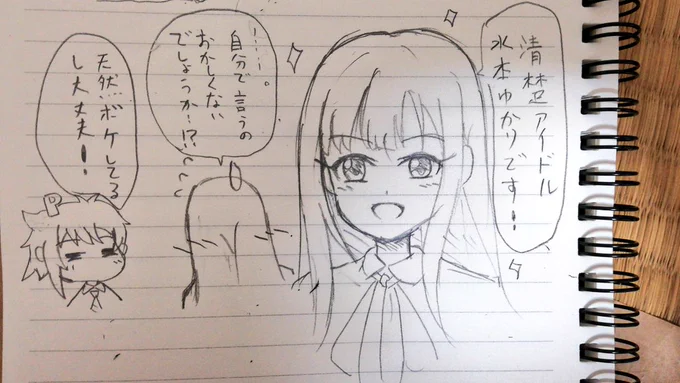 清楚アイドル
水本ゆかりです!
……。
自分で言うの
おかしくない
でしょうか!?
天然ボケしてる
し大丈夫!
P